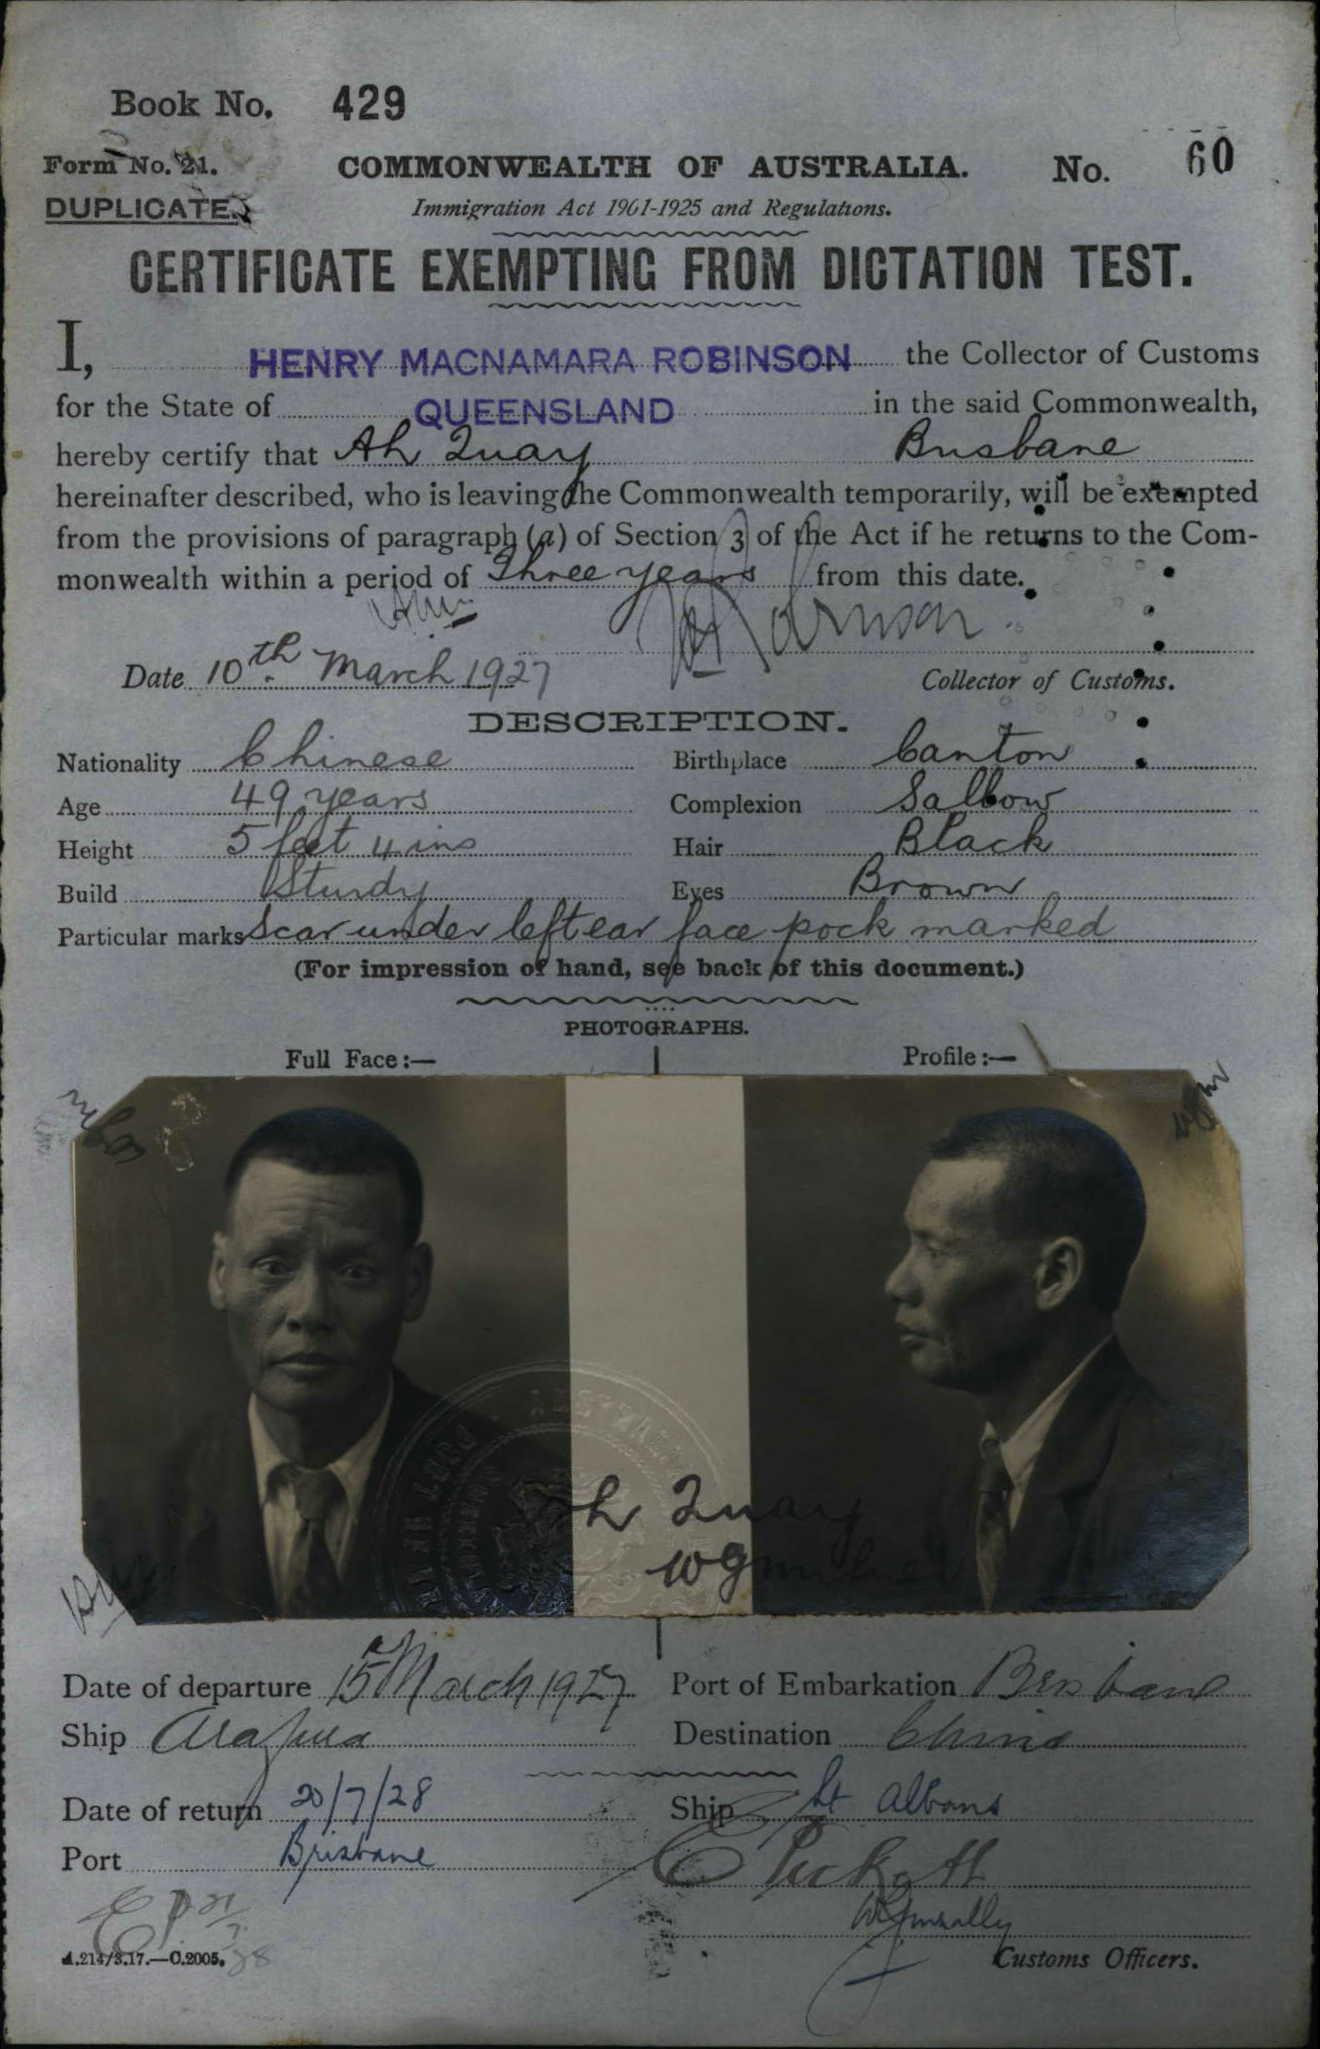 Book No. 429
Form No. 21. COMMONWEALTH OF AUSTRALIA. No. 60
DUPLICATE. Immigration Act 1901-1925 and Regulations.
CERTIFICATE EXEMPTING FROM DICTATION TEST.
I, HENRY MACNAMARA ROBINSON the Collector of Customs
for the State of QUEENSLAND in the said Commonwealth,
hereby certify that Ah Quay Brisbane
hereinafter described, who is leaving the Commonwealth temporarily, will be exempted
from the provisions of paragraph (a) of Section 3 of the Act if he returns to the Com-
monwealth within a period of Three years from this date.
Robinson
Date 10th March 1927 Collector of Customs.
DESCRIPTION.
Nationality Chinese Birthplace Canton
Age 49 years Complexion Sallow
Height 5 feet 4 ins Hair Black
Build Sturdy Eyes Brown
Particular marks Scar under left ear face pock marked
(For impression of hand, see back of this document.)
PHOTOGRAPHS.
Full Face:— Profile:—
Ah Quay
Date of departure 15 March 1927 Port of Embarkation Brisbane
Ship Arafura Destination China
Date of return 20/7/28 Ship St Albans
Port Brisbane
A.214/3.17.—C.2005.
Customs Officers.